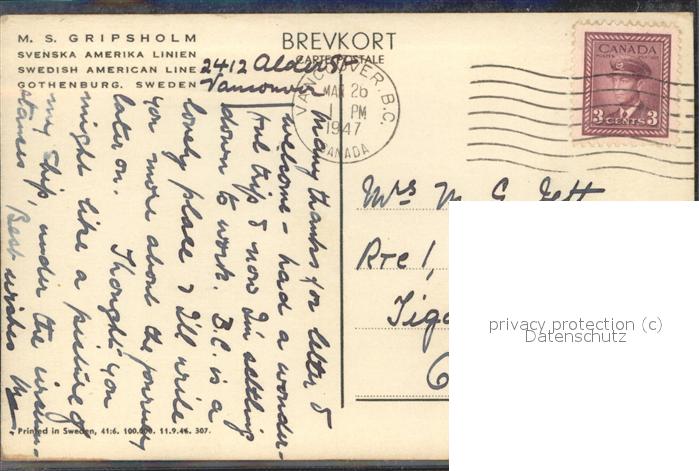 M. S. GRIPSHOLM
SVENSKA AMERIKA LINIEN
SWEDISH AMERICAN LINE
GOTHENBURG, SWEDEN
BREVKORT
CARTE POSTALE
2412 Alder St
Vancouver
VANCOUVER, B.C.
MAR 26
1 PM
1947
CANADA
CANADA
POSTES POSTAGE
3 CENTS 3
Many thanks for letter &
welcome - had a wonder-
ful trip & now I'm settling
down to work. B.C. is a
lovely place & I'll write
you more about the journey
later on. Thought you
might like a picture of
my ship, under the circum-
stances. Best wishes
Mrs M. E.
Rte 1,
Tiga
O
privacy protection (c)
Datenschutz
Printed in Sweden, 41:6. 100.000. 11.9.46. 307.